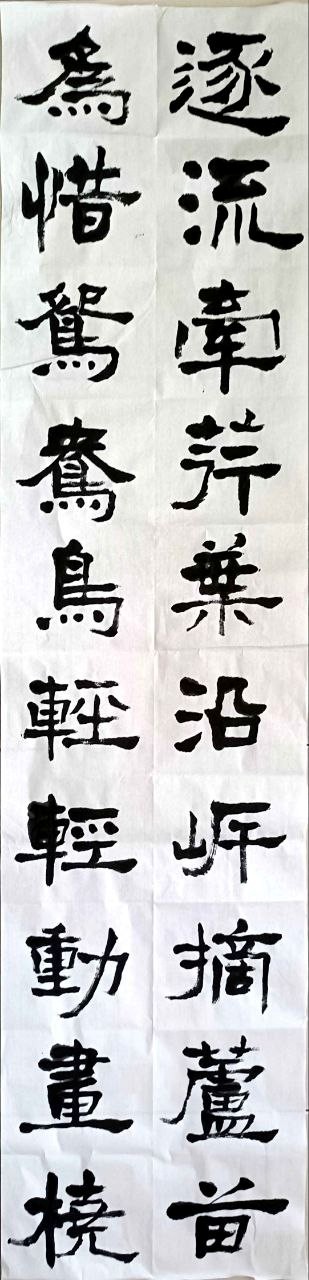 逐流牽荇葉沿岸摘蘆苗
為惜鴛鴦鳥輕輕動畫橈